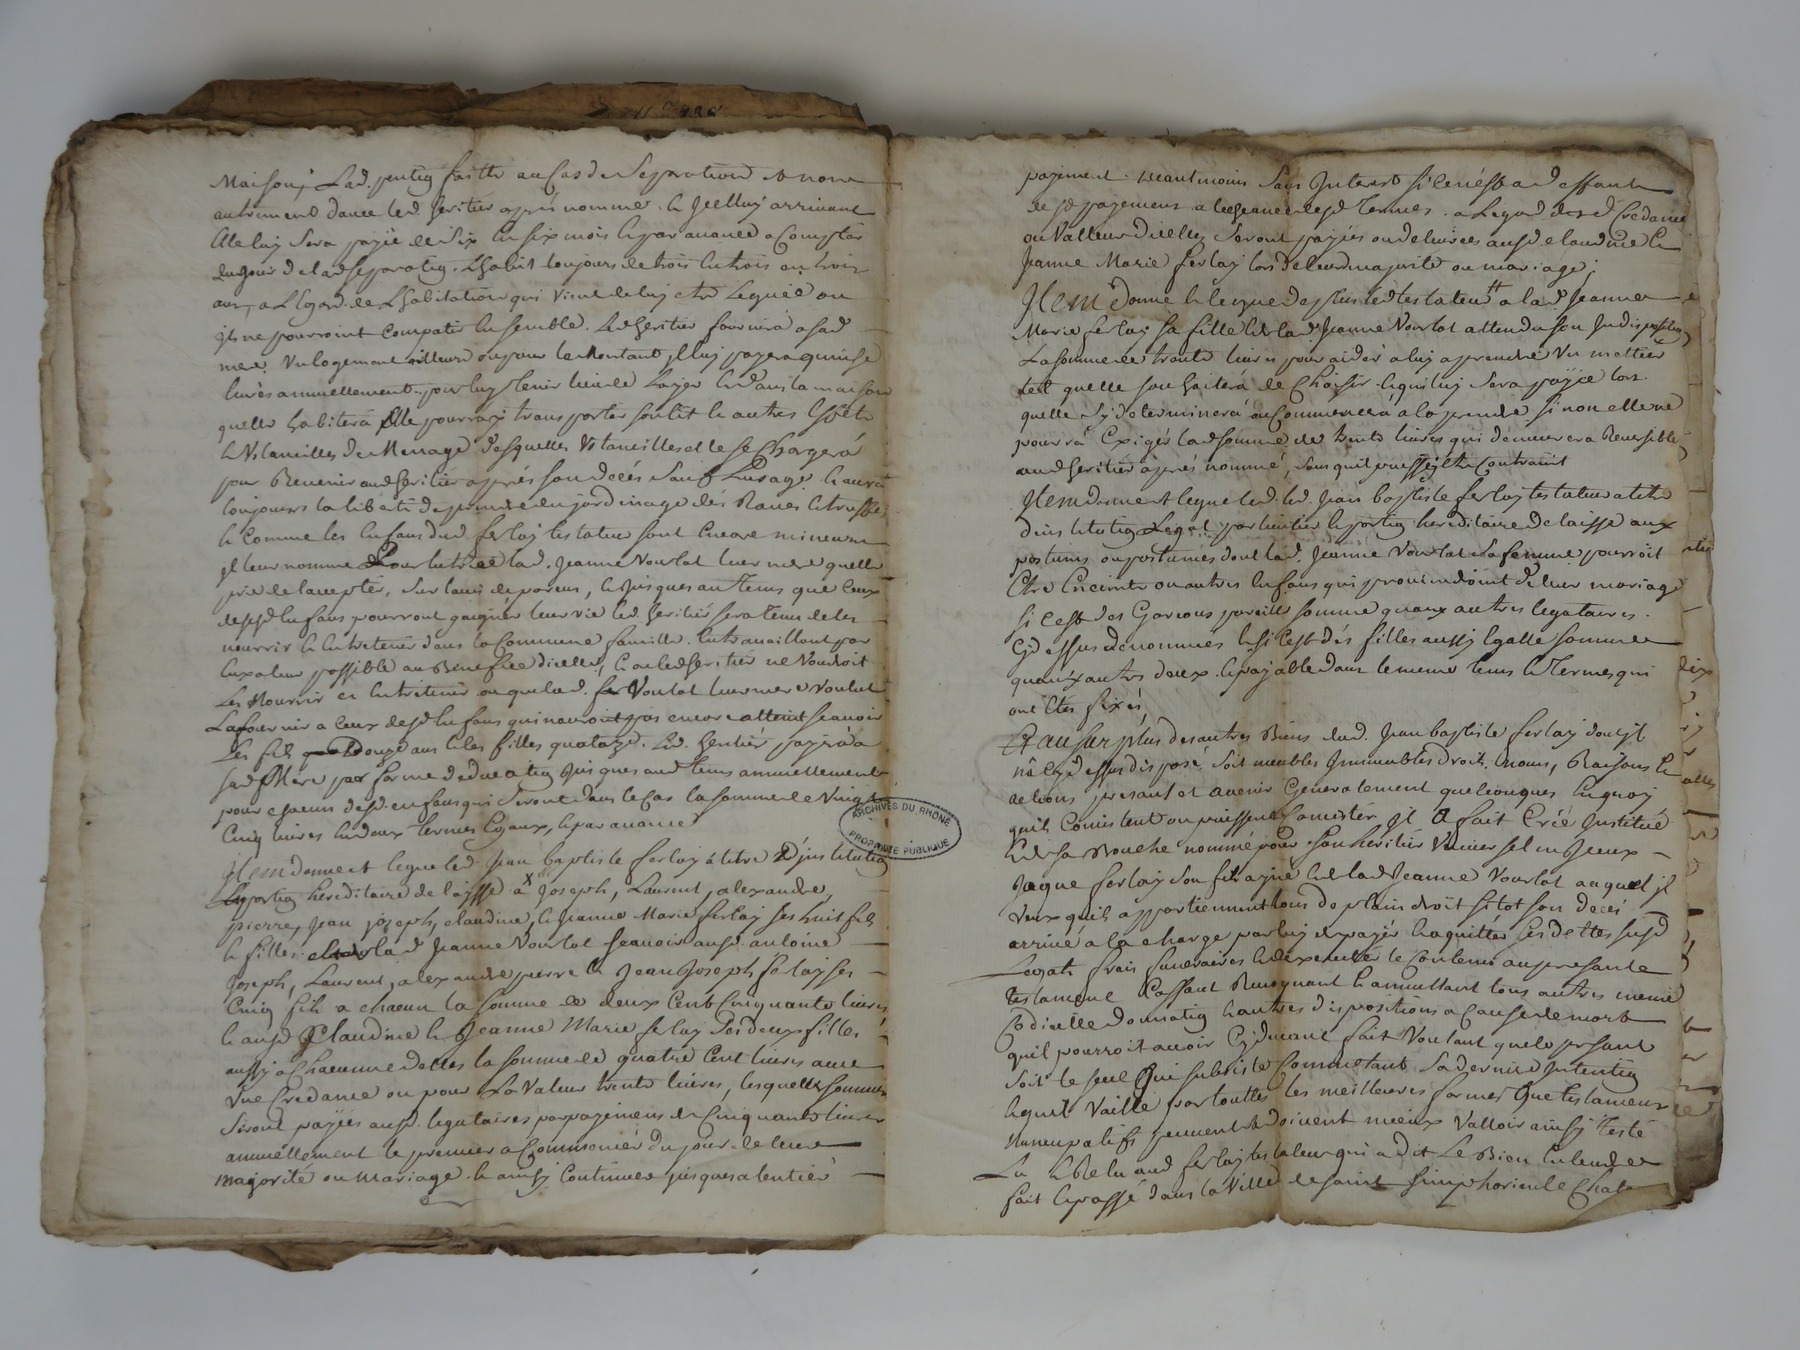 Maison, Lad. pention faitte au Cas de Separation et non
autrement dans led. heritier après nommé. le Jcelluy arrivant
Elle luy Sera payée de Six en six mois et par avance a Compter
du jour de lad. separation. L habit toujours de trois en trois
ans, a L Egard de L habitation qui vient de luy etre Leguée ou
ils ne pourroint Compatir Ensemble. Led. heritier fournira a sad.
mere un logement ailleurs ou pour le Montant Jl luy payera quinse
livres annuellement pour luy tenir lieu de Loyer et dans la maison
quelle habitera Elle pourra y transporter son lit et autres Effets
et Utancilles de Menage desquelles Utancilles elle se Chargera
pour Revenir aud. heritier après son decés Sauf L'usage. et aura
toujours la liberté de prendre du jardinage dés Raves et truffes
et Comme les Enfans dud. ferlay testateur sont Encore mineurs
Jl leur nomme pour tutrice lad. Jeanne Vourlat leur mere quelle
prie de l accepter, Sur l avis de parens, et jusques au tems que Ceux
desd. Enfans pourront gaigner leur vie led. heritier sera tenu de les
nourrir et Entretenir dans la Commune famille. En travaillant par
Eux a leur possible au Benefice d icelle, et ou led. heritier ne Voudroit
Les Nourrir et Entretenir ou que lad. Vourlat leur mere Voulut
La fournir a Ceux desd. Enfans qui nauroint pas encore atteint scavoir
Les fils douze ans et les filles quatorze. Led. heritier payera a
sad. Mere par forme d education jusques aud. tems annuellement
pour chacun desd. enfans qui Seront dans le Cas la somme de Vingt
Cinq livres En deux termes Egaux, et par avance
Jtem donne et legue led. Jean baptiste ferlay a titre d'institution
Et portion hereditaire delaysse a x Joseph, Laurent, alexandre,
pierre, Jean joseph, claudine, et Jeanne Marie ferlay ses huit fils
et filles et de lad. Jeanne Vourlat scavoir ausd. antoine
Joseph, Laurent, alexandre pierre et Jean Joseph ferlay ses
Cinq fils a chacun la somme de deux Cent Cinquante livres
et ausd. Claudine et Jeanne Marie ferlay Ses deux filles
aussy a Chacunne delles la somme de quatre Cent livres avec
Une Credance ou pour La Valeur trente livres, lesquelles sommes
Seront payées ausd. legataires par payemens de Cinquante livres
annuellement le premier a Commencer du jour de leur
majorité ou Mariage et ainsy Continuer jusques a l entier
ARCHIVES DU RHONE
PROPRIÉTÉ PUBLIQUE
payement neantmoins Sans Interest si ce nest a deffaut
de payement a l echeance desd. termes. a L egard desd. Credance
ou Valleur dicelles Seront payées ou delivrées ausd. claudine et
Jeanne Marie ferlay lors de leur majorité ou mariage;
Jtem donne et legue de plus led. testateur a lad. Jeanne
Marie ferlay sa fille et de lad. Jeanne Vourlat attendu son Indisposition
La somme de trente livres pour aider a luy aprendre Un mettier
tel quelle souhaitera de Choisir. et qui luy Sera payée lors
quelle s'y determinera ou Commencera a l aprendre si non elle ne
pourra Exiger lad. somme de trente livres qui demeurera Reversible
aud. heritier après nommé, sans quil puisse y etre Contraint
Jtem donne et legue led. Jean baptiste ferlay testateur a titre
d'institution Legat particulier et portion hereditaire delaisse aux
postumes ou postumes dont lad. Jeanne Vourlat Sa femme pourroit
Etre Enceinte ou autres Enfans qui proviendroint de leur mariage
si C est des Garcons pareille somme quaux autres legataires.
Cy dessus denommés et si C est des filles aussy Egalle somme
quaux autres deux. et payable dans le meme tems et termes qui
ont Etes fixés
Et au Surplus des autres Biens dud. Jean baptiste ferlay dont Jl
n'a Cy dessus disposé Soit meubles Jmmeubles droits, noms, Raisons Et
actions present et avenir Generalement quelconques En quoy
quils Consistent ou puissent Consister Jl a fait Créé Jnstitué
Et de sa Bouche nommé pour Son heritier Universel un Jceux
Jaque ferlay son fils ayné et de lad. Jeanne Vourlat auquel jl
Veux quils appartiennent tous de plain droit sitot son decés
arrivé a la charge par luy de payer et aquitter ses dettes susd.
Legats frais funeraires et d'executer le Contenu au presant
testament Cassant Revoquant et annullant tous autres meme
Codicille Donnation et autres dispositions a Cause de mort
quil pourroit avoir Cy devant fait Voulant que le presant
Soit le Seul qui subsiste Comme Etant Sa derniere Jntention
lequel Vaille par touttes les meilleures formes Que testament
Nuncupatifs peuvent et doivent mieux Valloir ainsy Testé
Lu et Relu aud. ferlay testateur qui a dit Le Bien Entendre
fait et passé dans la Ville de saint Simphorien le Chatel